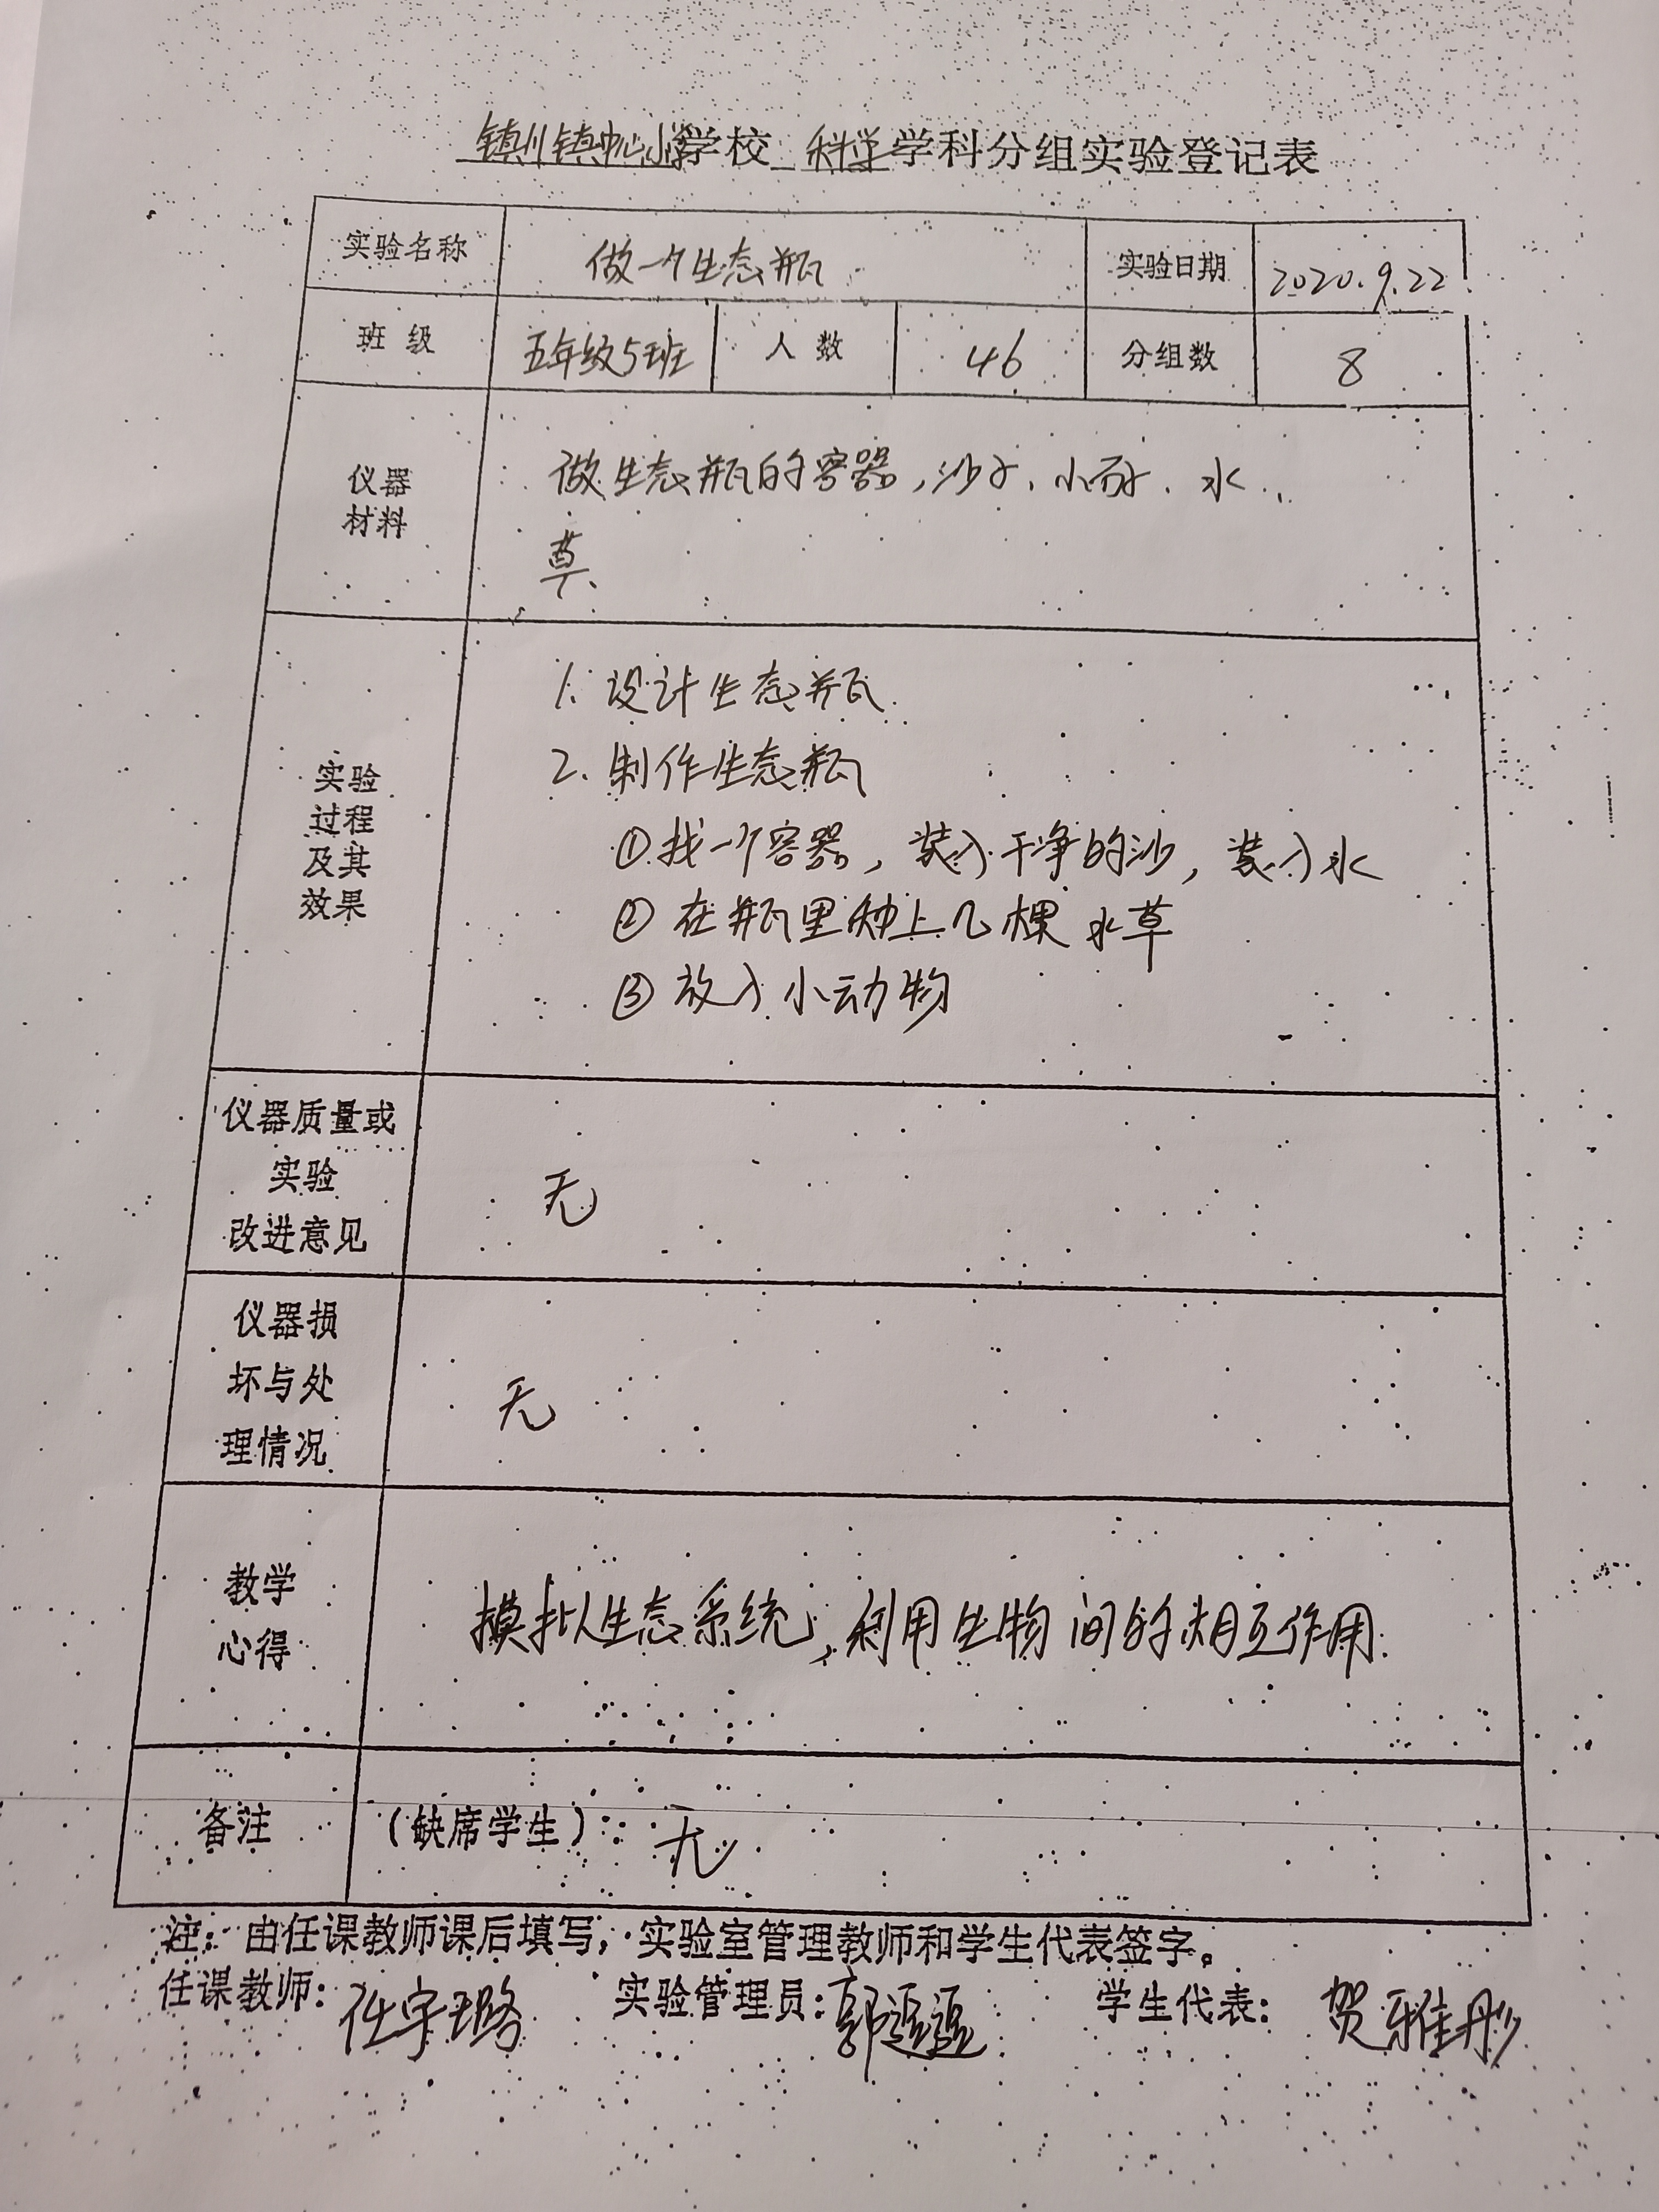 镇川镇中心小学学校 科学学科分组实验登记表
实验名称 做一个生态瓶 实验日期 2020.9.22
班 级 五年级5班 人 数 46 分组数 8
仪器
材料
做生态瓶的容器,沙子、小石子、水
草、
实验
过程
及其
效果
1. 设计生态瓶
2. 制作生态瓶
①找一个容器,装入干净的沙,装入水
②在瓶里种上几棵水草
③放入小动物
仪器质量或
实验
改进意见
无
仪器损
坏与处
理情况
无
教学
心得
摸拟生态系统,利用生物间的相互作用.
备注 (缺席学生): 无
注:由任课教师课后填写;实验室管理教师和学生代表签字。
任课教师: 任宇璐 实验管理员: 郭逗逗 学生代表: 贺雅彤